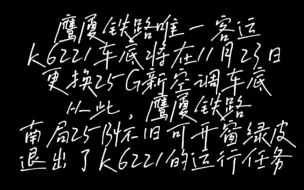 鹰厦铁路唯一客运
K6221车底将在11月23日
更换25G新空调车底
从此，鹰厦铁路
南局25B怀旧可开窗绿皮
退出了K6221的运行任务